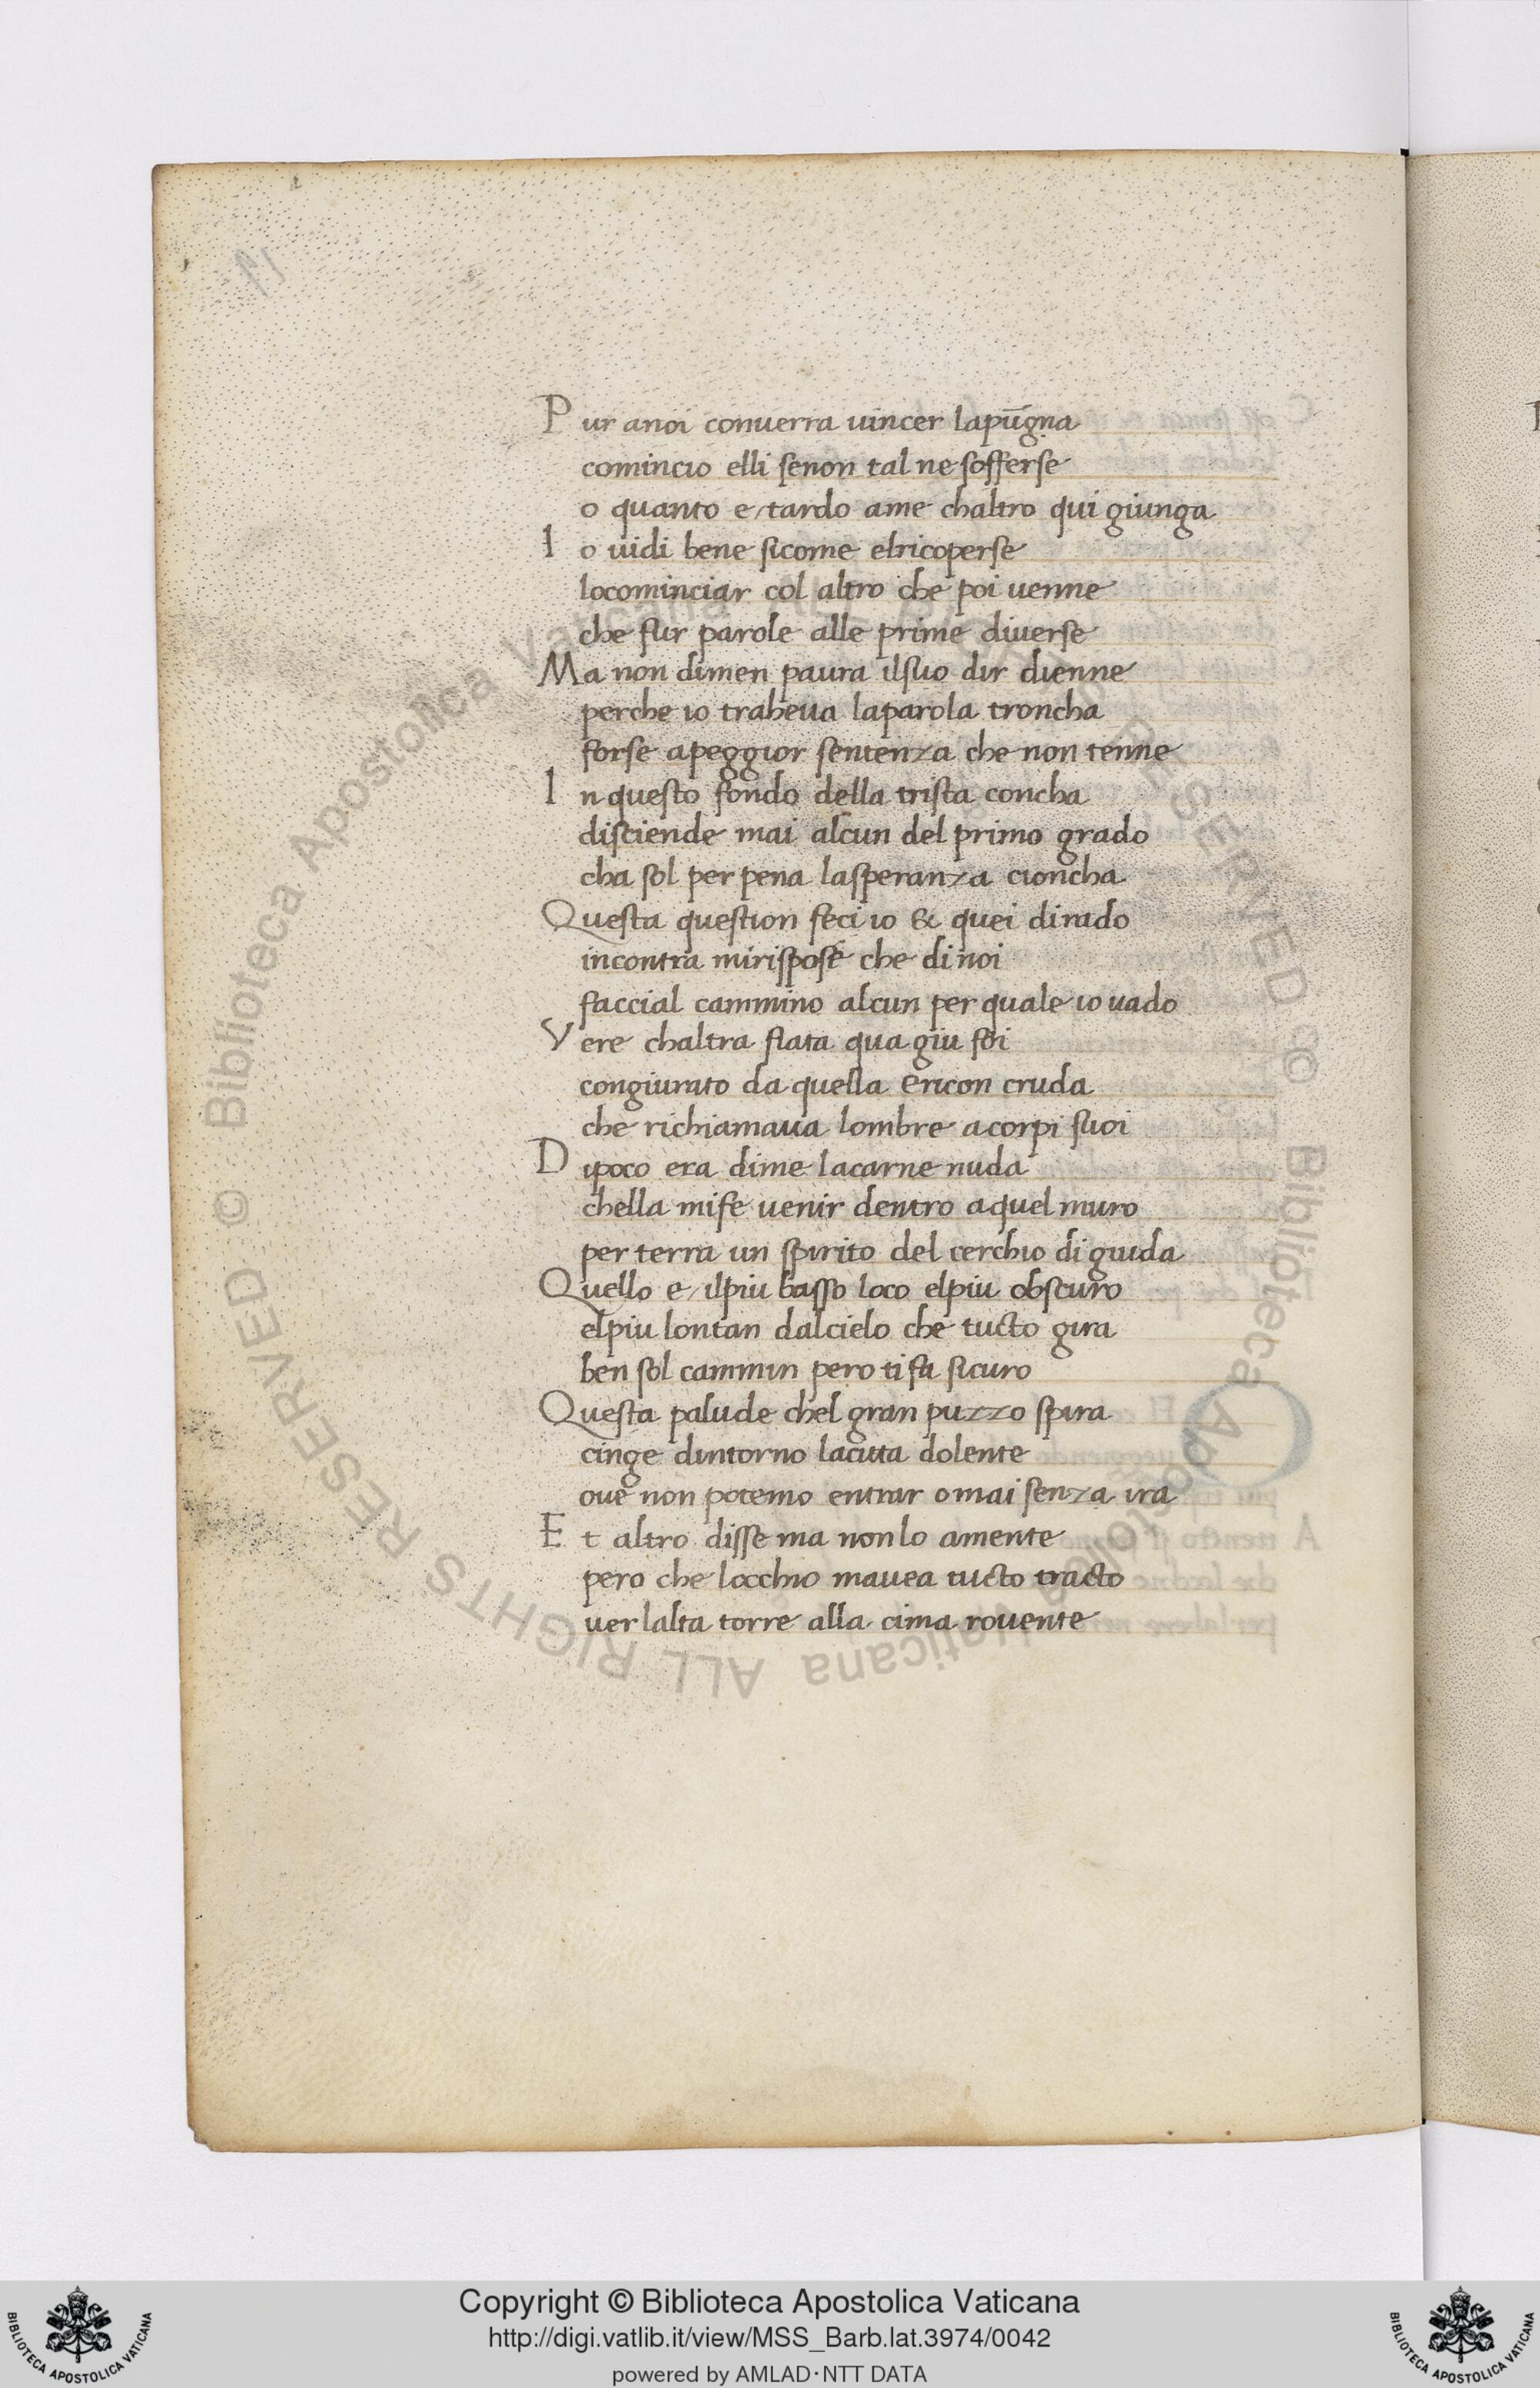 Pur anoi conuerra uincer lapūgna
comincio elli senon tal ne sofferse
o quanto e/tardo ame chaltro qui giunga
Io uidi bene sicome elricoperse
locominciar col altro che poi uenne
che fur parole alle prime diuerse
Ma non dimen paura ilsuo dir dienne
perche io traheua laparola troncha
forse apeggior sentenza che non tenne
In questo fondo della trista concha
disciende mai alcun del primo grado
cha sol per pena lasperanza cioncha
Questa question feci io & quei dirado
incontra mirispose che di noi
faccial cammino alcun per quale io uado
Vere chaltra fiata qua giu foi
congiurato da quella ericon cruda
che richiamaua lombre acorpi suoi
Dipoco era dime lacarne nuda
chella mife uenir dentro aquel muro
per terra un spirito del cerchio di giuda
Quello e/ilpiu basso loco elpiu obscuro
elpiu lontan dalcielo che tucto gira
ben sol cammin pero ti fa sicuro
Questa palude chel gran puzzo spira
cinge dintorno lacitta dolente
oue non potemo entrar omai senza ira
Et altro disse ma nonlo amente
pero che locchio mauea tucto tracto
uer lalta torre alla cima rouente
Biblioteca Apostolica Vaticana ALL RIGHTS RESERVED ©
Copyright © Biblioteca Apostolica Vaticana
http://digi.vatlib.it/view/MSS_Barb.lat.3974/0042
powered by AMLAD·NTT DATA
BIBLIOTECA APOSTOLICA VATICANA
BIBLIOTECA APOSTOLICA VATICANA